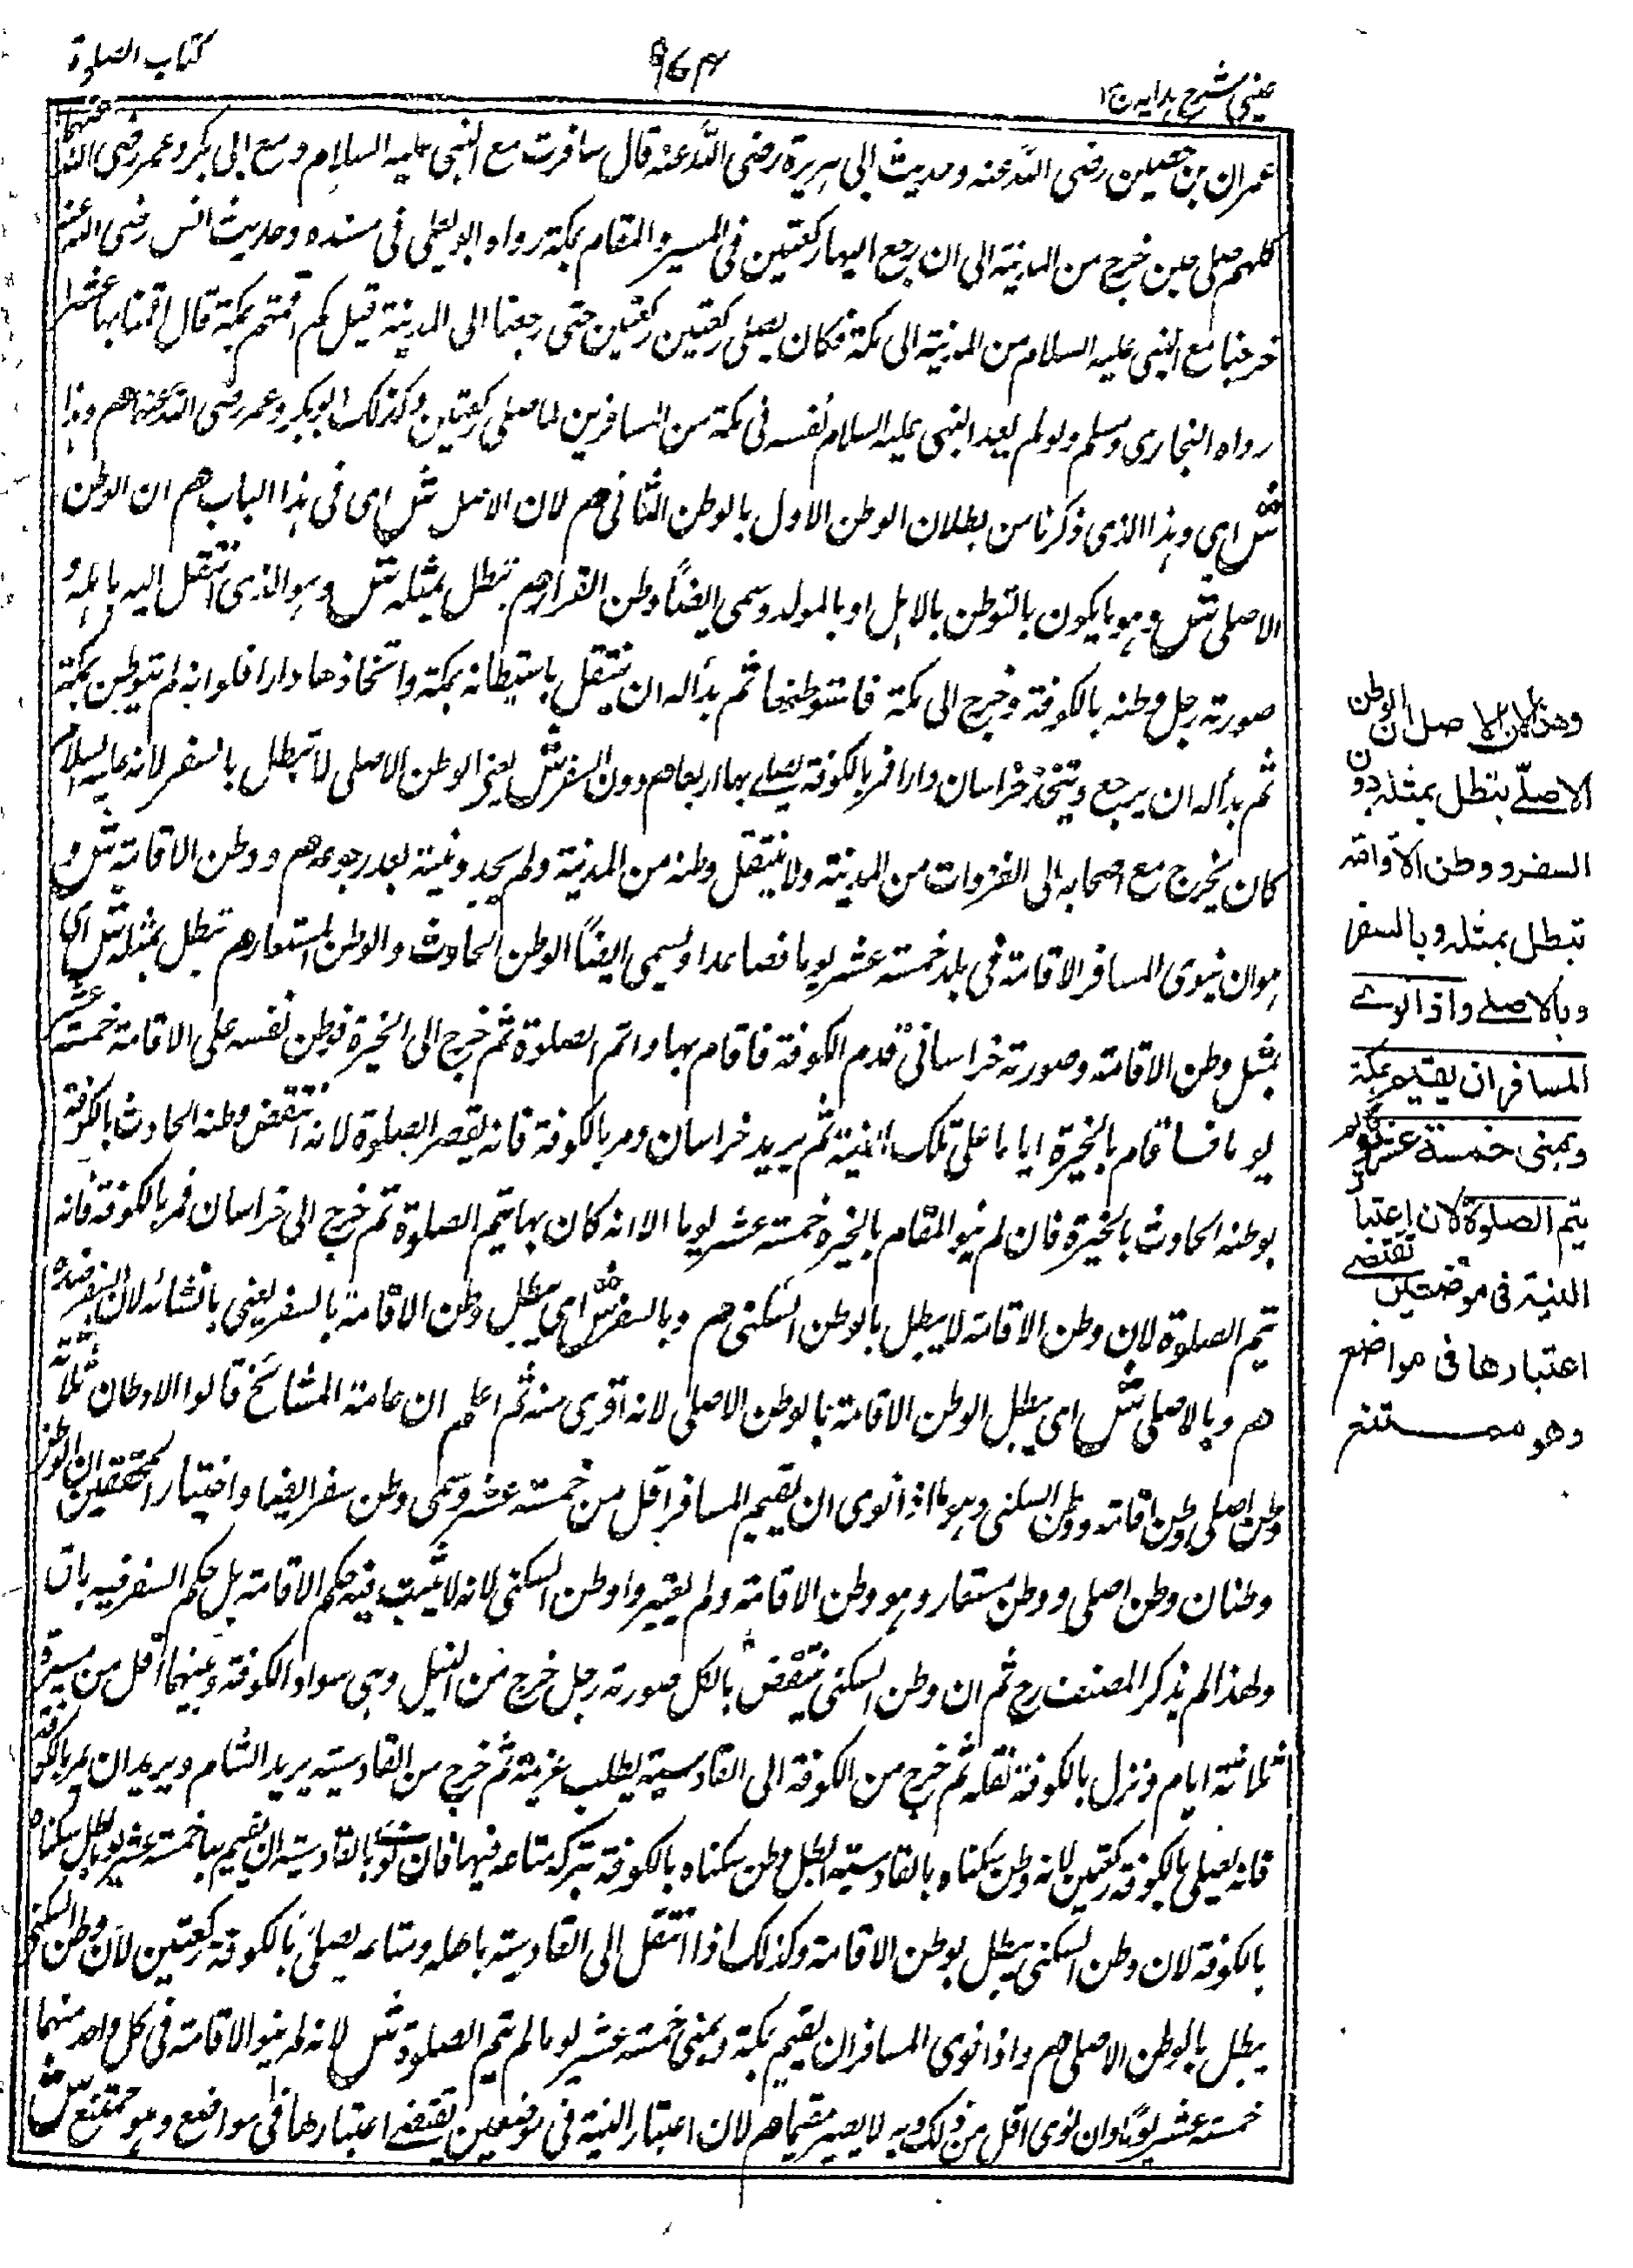 عینی شرح ہدایہ ج ۱
۹۶۴
کتاب الصلوة
عمران بن حصين رضى الله عنه وحديث ابى هريرة رضى الله عنه قال سافرت مع النبى عليه السلام ومع ابى بكر وعمر رضى الله عنهما
كلهم صلى حين خرج من المدينة الى ان رجع اليها ركعتين فى المسير والمقام بمكة رواه ابو يعلى فى مسنده وحديث انس رضى الله عنه
خرجنا مع النبى عليه السلام من المدينة الى مكة فكان يصلى ركعتين ركعتين حتى رجعنا الى المدينة قيل كم اقمتم بمكة قال اقمنا بها عشرا
رواه البخارى ومسلم ولو لم يعد النبى عليه السلام نفسه فى مكة من المسافرين لما صلى ركعتين وكذلك ابو بكر وعمر رضى الله عنهما هم وهذا
ش اى وهذا الذى ذكرنا من بطلان الوطن الاول بالوطن الثانى هم لان الاصل ش اى فى هذا الباب هم ان الوطن
الاصلى ش وهو ما يكون بالتوطن بالاهل او بالمولد وسمى ايضاً وطن القرار هم تبطل بمثله ش وهو الذى انتقل اليه باهله و
صورته رجل وطنه بالكوفة وخرج الى مكة فاستوطنها ثم بدا له ان ينتقل باستيطانه بمكة واتخاذها دارا فلو انه لم يتوطن بمكة
ثم بدا له ان يرجع ويتخذ خراسان دارا فمر بالكوفة يصلے بها اربعا هم دون السفر ش يعنى الوطن الاصلى لا تبطل بالسفر لانه عليه السلام
كان يخرج مع اصحابه الى الغزوات من المدينة ولا ينتقل وطنه من المدينة ولم يجدد نيته بعد رجوعه هم ووطن الاقامة ش و
هو ان ينوى المسافر الاقامة فى بلد خمسة عشر يوما فصاعدا ويسمى ايضاً الوطن الحادث والوطن المستعار هم تبطل بمثله ش اى
بمثل وطن الاقامة وصورته خراسانى قدم الكوفة فاقام بها واتم الصلوة ثم خرج الى الخيرة فوطن نفسه على الاقامة خمسة عشر
يوما فاقام بالخيرة اياما على تلك النية ثم يريد خراسان ومر بالكوفة فانه يقصر الصلوة لانه انتقض وطنه الحادث بالكوفة
بوطنه الحادث بالخيرة فان لم ينو المقام بالخيرة خمسة عشر يوما الا انه كان بها يتم الصلوة ثم خرج الى خراسان فمر بالكوفة فانه
يتم الصلوة لان وطن الاقامة لا يبطل بالوطن السكنى هم وبالسفر ش اى يبطل وطن الاقامة بالسفر يعنى بانشائه لان السفر ضده
هم وبالاصلى ش اى يبطل الوطن الاقامة بالوطن الاصلى لانه اقوى منه ثم اعلم ان عامة المشائخ قالوا الاوطان ثلاثة
وطن اصلى ووطن اقامة ووطن السكنى وهو ما اذا نوى ان يقيم المسافر اقل من خمسة عشر وسمى وطن سفر ايضا واختيار المحققين ان الوطن
وطنان وطن اصلى ووطن مستعار وهو وطن الاقامة ولم يعتبروا وطن السكنى لانه لا يثبت فيه حكم الاقامة بل حكم السفر فيه باق
ولهذا لم يذكر المصنف رح ثم ان وطن السكنى ينتقض بالكل صورته رجل خرج من النيل وهى سواد الكوفة وبينهما اقل من مسيرة
ثلاثة ايام ونزل بالكوفة ثقله ثم خرج من الكوفة الى القادسية يطلب غريمة ثم خرج من القادسية يريد الشام ويريد ان يمر بالكوفة
فانه يصلى بالكوفة ركعتين لانه وطن سكناه بالقادسية ابطل وطن سكناه بالكوفة بتركه متاعه فيها فان نوى بالقادسية ان يقيم بها خمسة عشر يوما بطل سكناه
بالكوفة لان وطن السكنى يبطل بوطن الاقامة وكذلك اذا انتقل الى القادسية باهله ومتاعه يصلى بالكوفة ركعتين لان وطن السكنى
يبطل بالوطن الاصلى هم واذا نوى المسافر ان يقيم بمكة وبمنى خمسة عشر يوما لم يتم الصلوة ش لانه لم ينو الاقامة فى كل واحد منهما
خمسة عشر يوما وان نوى اقل من ذلك وبه لا يصير مقيما هم لان اعتبار النية فى موضعين يقتضے اعتبارها فى مواضع وهو ممتنع ش
وهذا لان الاصل ان الوطن
الاصلے تبطل بمثله دون
السفر ووطن الاقامة
تبطل بمثله وبالسفر
وبالاصلے واذا نوى
المسافر ان يقيم بمكة
وبمنى خمسة عشر يوما لم
يتم الصلوة لان اعتبار
النية فى موضعين تقتضے
اعتبارها فى مواضع
وهو ممتنع